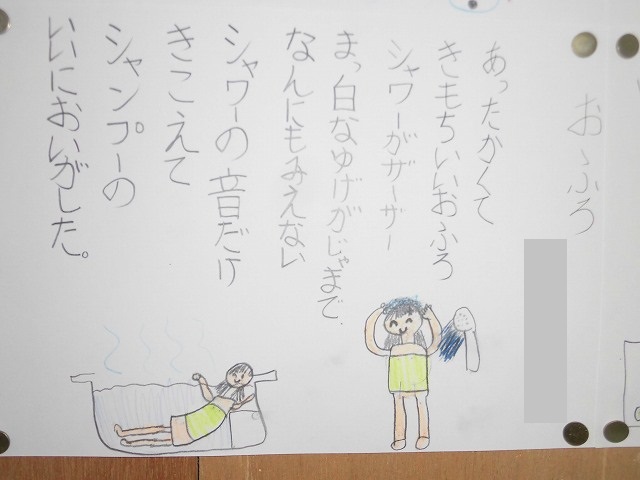 おゝふろ
あったかくて
きもちいいおふろ
シャワーがザーザー
まっ白なゆげがじゃまで、
なんにもみえない
シャワーの音だけ
きこえて
シャンプーの
いいにおいがした。